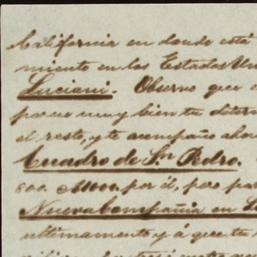 California en donde está
miento en los Estados Un
Luciani. Observo que
muy bien tu deter
el resto, y te acompaño aho
Cuadro de Sn Pedro.
800. por él, pero pa
Nueva Compañia en
ultimamente y á que tu